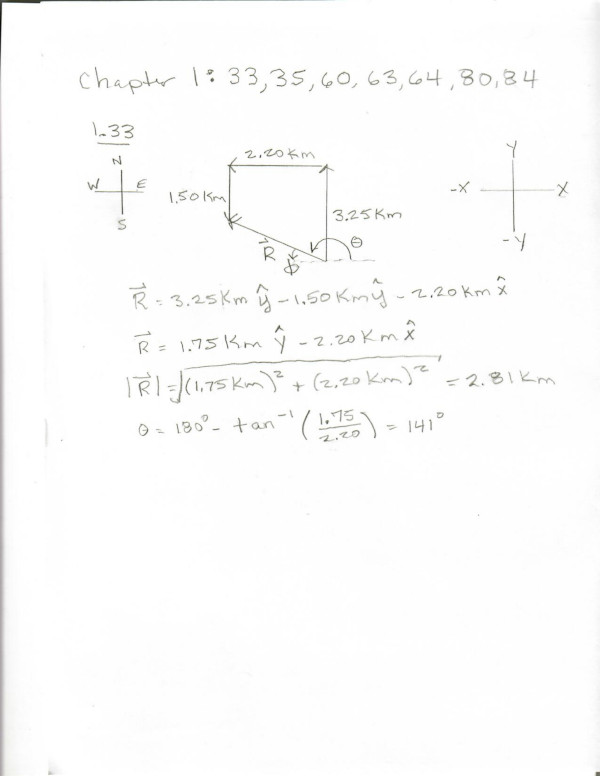 Chapter 1: 33, 35, 60, 63, 64, 80, 84
1.33
N
W E
S
2.20 Km
1.50 Km
3.25 Km
R⃗
Φ
θ
Y
-X X
-Y
R⃗ = 3.25 Km ŷ - 1.50 Km ŷ - 2.20 Km x̂
R⃗ = 1.75 Km ŷ - 2.20 Km x̂
|R⃗| = √((1.75 Km)² + (2.20 Km)²) = 2.81 Km
θ = 180° - tan⁻¹ (1.75/2.20) = 141°